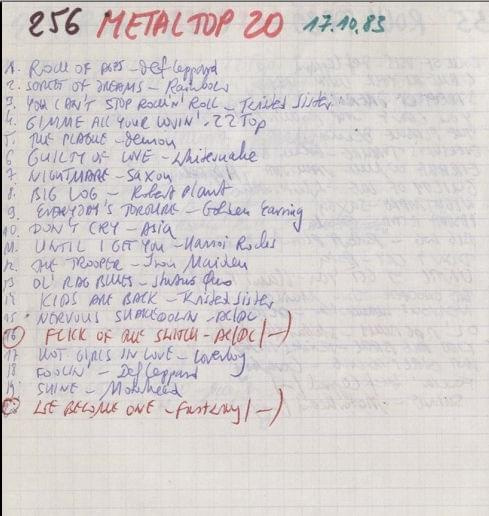 256 METAL TOP 20 17.10.83
1. ROCK OF AGES - Def Leppard
2. STREET OF DREAMS - Rainbow
3. YOU CAN'T STOP ROCKIN' ROLL - Twisted Sister
4. GIMME ALL YOUR LOVIN' - ZZ Top
5. THE PLAGUE - Demon
6 GUILTY OF LOVE - Whitesnake
7. NIGHTMARE - Saxon
8. BIG LOG - Robert Plant
9. EVERYDAY'S TORTURE - Golden Earring
10. DON'T CRY - Asia
11. UNTIL I GET YOU - Hanoi Rocks
12. THE TROOPER - Iron Maiden
13 OL' RAG BLUES - Status Quo
14 KIDS ARE BACK - Twisted Sister
15 NERVOUS SHAKEDOWN - AC/DC
16 FLICK OF THE SWITCH - AC/DC (-)
17 HOT GIRLS IN LOVE - Loverboy
18 FOOLIN' - Def Leppard
19. SHINE - Motorhead
20 WE BECOME ONE - Fastway (-)